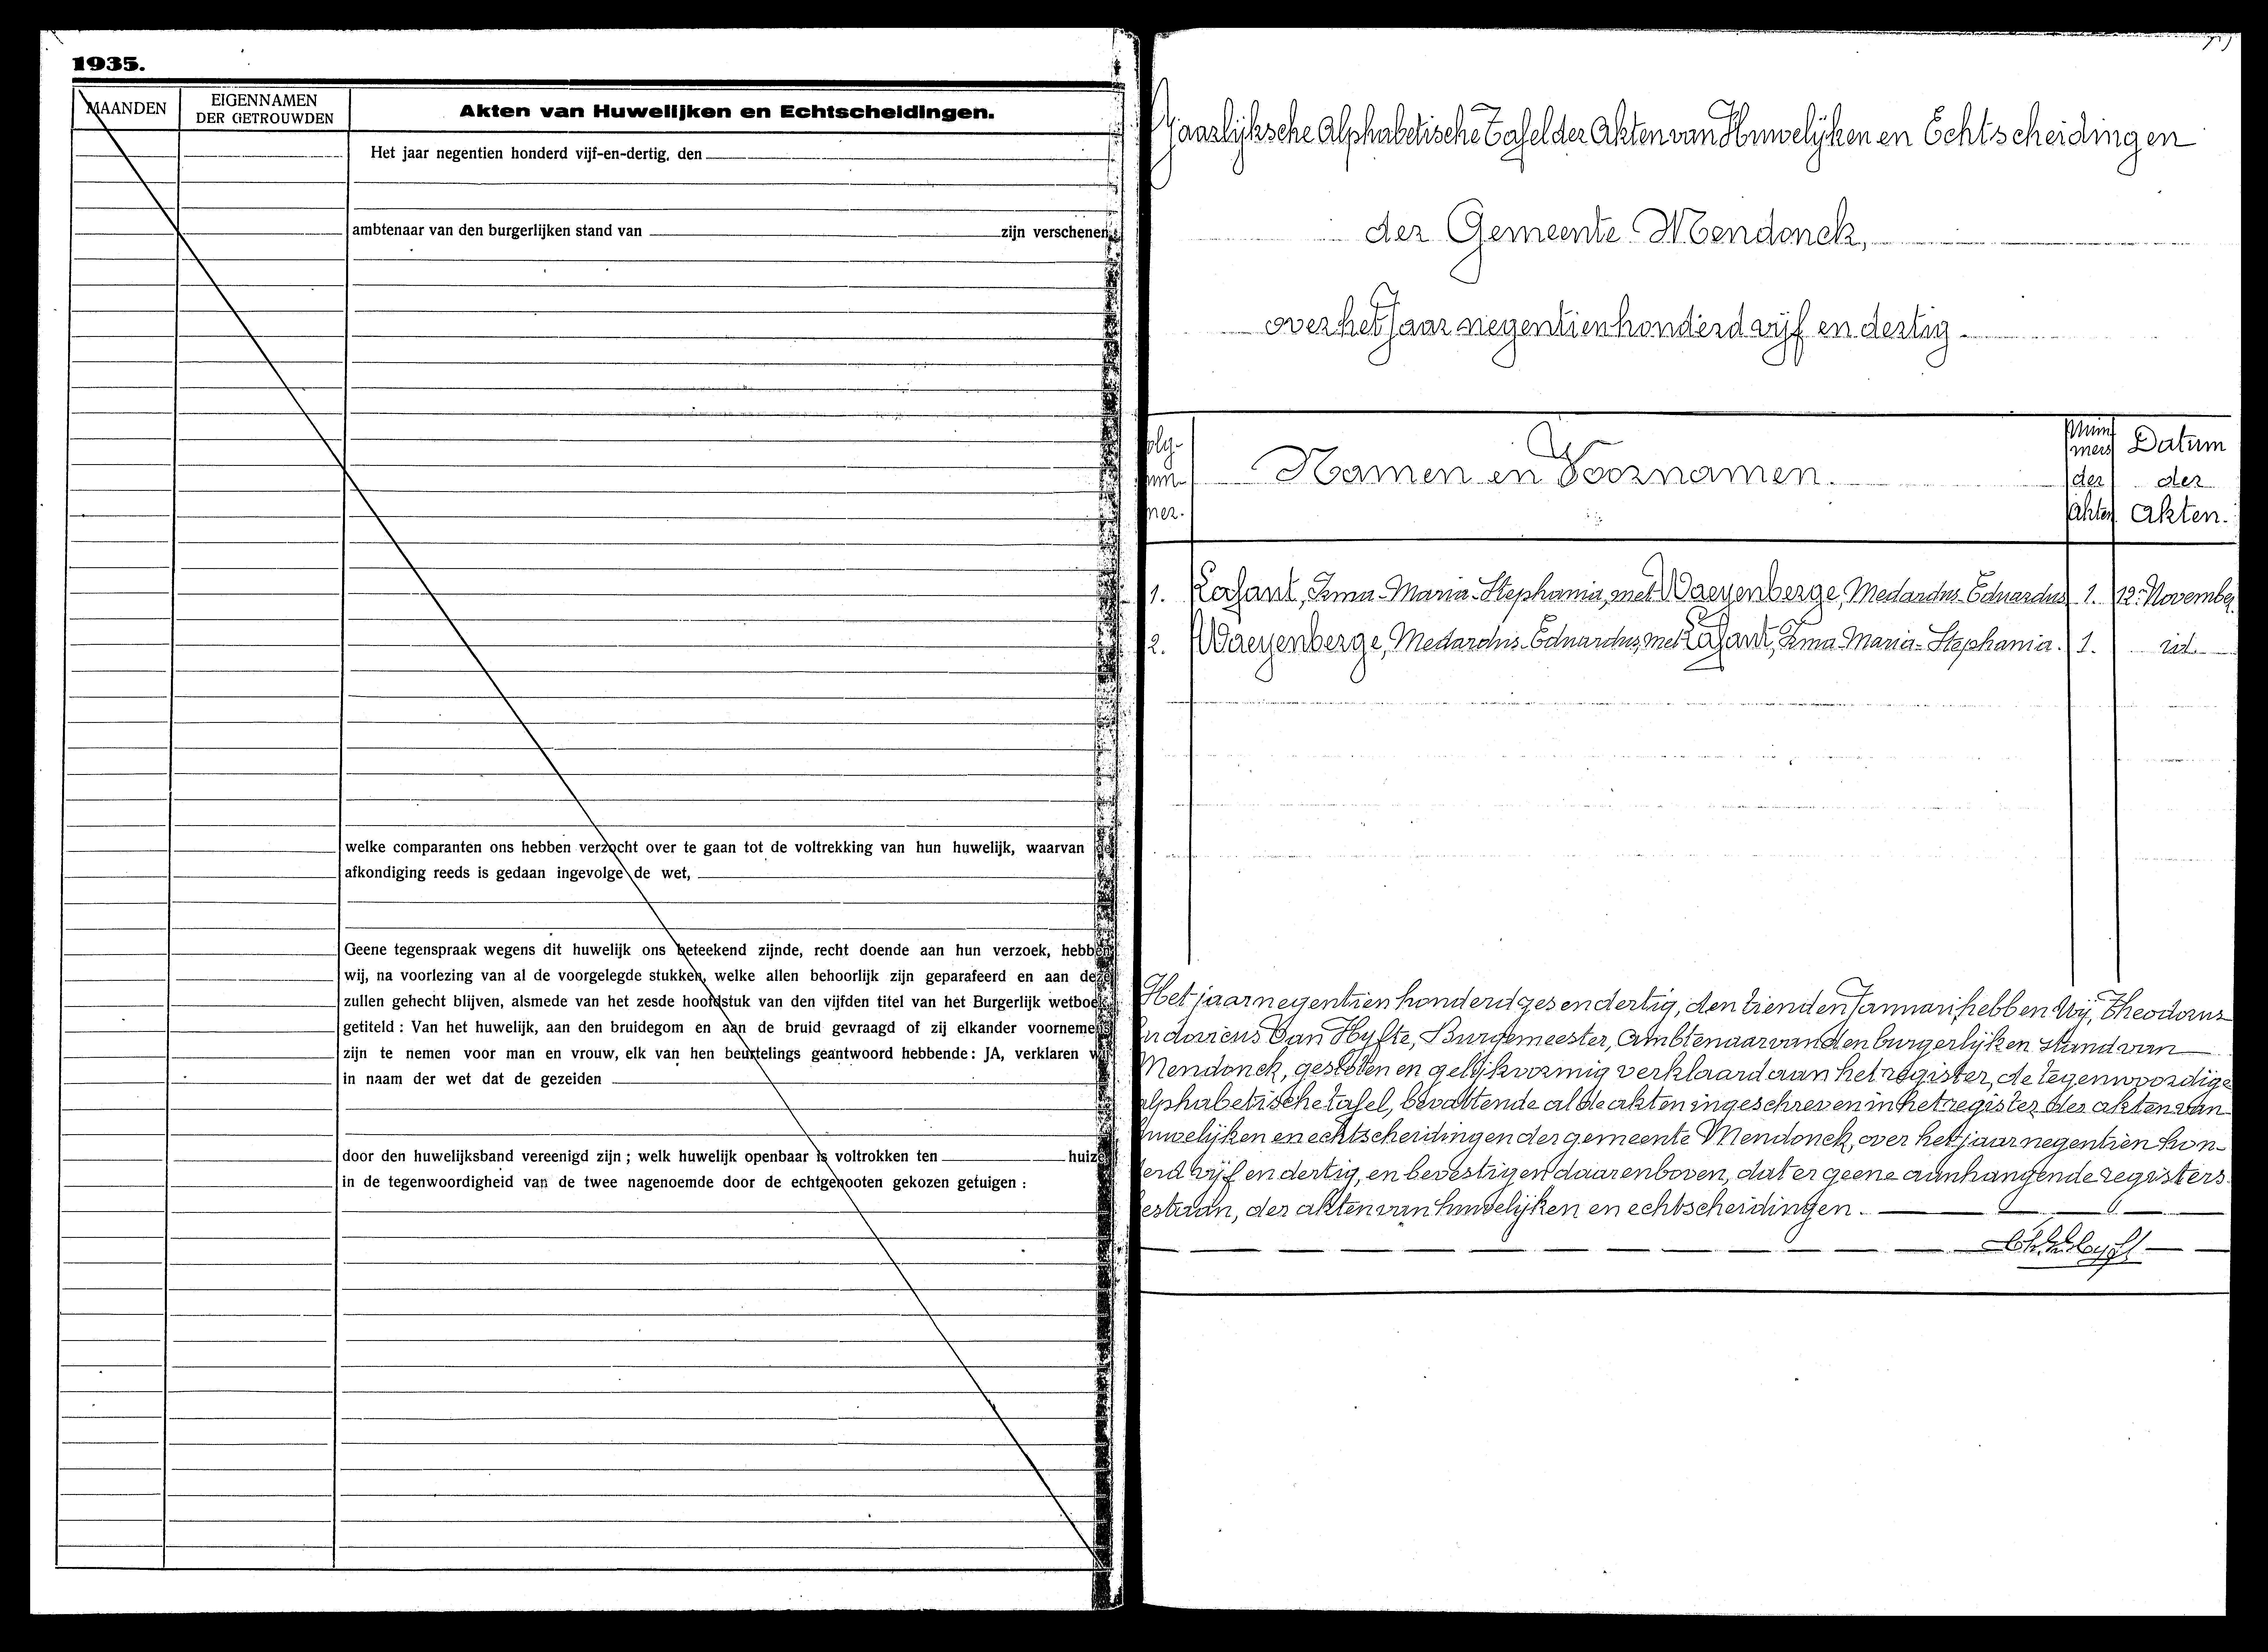 1935.
MAANDEN
EIGENNAMEN
DER GETROUWDEN
Akten van Huwelijken en Echtscheidingen.
Het jaar negentien honderd vijf-en-dertig, den
ambtenaar van den burgerlijken stand van zijn verschenen
welke comparanten ons hebben verzocht over te gaan tot de voltrekking van hun huwelijk, waarvan
afkondiging reeds is gedaan ingevolge de wet,
Geene tegenspraak wegens dit huwelijk ons beteekend zijnde, recht doende aan hun verzoek, hebben
wij, na voorlezing van al de voorgelegde stukken, welke allen behoorlijk zijn geparafeerd en aan deze
zullen gehecht blijven, alsmede van het zesde hoofdstuk van den vijfden titel van het Burgerlijk wetboek
getiteld : Van het huwelijk, aan den bruidegom en aan de bruid gevraagd of zij elkander voornemens
zijn te nemen voor man en vrouw, elk van hen beurtelings geantwoord hebbende : JA, verklaren wij
in naam der wet dat de gezeiden
door den huwelijksband vereenigd zijn ; welk huwelijk openbaar is voltrokken ten huize
in de tegenwoordigheid van de twee nagenoemde door de echtgenooten gekozen getuigen :
Jaarlijksche Alphabetische Tafel der Akten van Huwelijken en Echtscheidingen
der Gemeente Mendonck,
over het Jaar negentien honderd vijf en dertig.
Volg-
num-
mer.
Namen en Voornamen.
Num
mers
der
Akten
Datum
der
Akten.
1. Lasant, Irma-Maria-Stephania, met Waeyenberge, Medardus-Eduardus 1. 12 November
2. Waeyenberge, Medardus-Eduardus, met Lasant, Irma-Maria-Stephania. 1. id.
Het jaar negentien honderd zes en dertig, den tienden Januari, hebben Wij, Theodorus
Ludovicus Van Hyfte, Burgemeester, Ambtenaar van den burgerlijken stand van
Mendonck, gesloten en gelijkvormig verklaard aan het register, de tegenwoordige
alphabetische tafel, bevattende al de akten ingeschreven in het register der akten van
huwelijken en echtscheidingen der gemeente Mendonck, over het jaar negentien hon-
derd vijf en dertig, en bevestigen daarenboven, dat er geene aanhangende registers
bestaan, der akten van huwelijken en echtscheidingen.